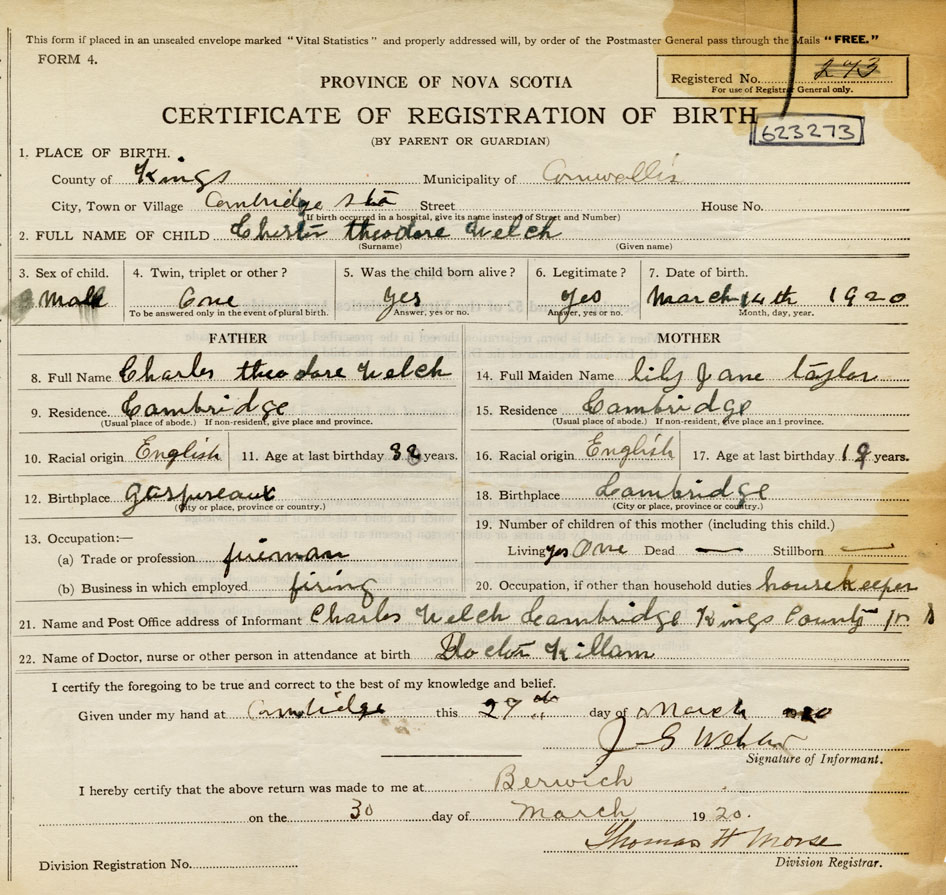 This form if placed in an unsealed envelope marked "Vital Statistics" and properly addressed will, by order of the Postmaster General pass through the Mails "FREE."
FORM 4.
Registered No. 273
For use of Registrar General only.
PROVINCE OF NOVA SCOTIA
CERTIFICATE OF REGISTRATION OF BIRTH
623273
(BY PARENT OR GUARDIAN)
1. PLACE OF BIRTH.
County of Kings Municipality of Cornwallis
City, Town or Village Cambridge Sta Street House No.
(If birth occurred in a hospital, give its name instead of Street and Number)
2. FULL NAME OF CHILD Chester theodore Welch
(Surname) (Given name)
3. Sex of child. 4. Twin, triplet or other? 5. Was the child born alive? 6. Legitimate? 7. Date of birth.
Male yes yes March 14th 1920
To be answered only in the event of plural birth. Answer, yes or no. Answer, yes or no. Month, day, year.
FATHER MOTHER
8. Full Name Charles theodore Welch 14. Full Maiden Name lily Jane taylor
9. Residence Cambridge 15. Residence Cambridge
(Usual place of abode.) If non-resident, give place and province. (Usual place of abode.) If non-resident, give place and province.
10. Racial origin English 11. Age at last birthday years. 16. Racial origin English 17. Age at last birthday 19 years.
12. Birthplace gaspereaux 18. Birthplace Cambridge
(City or place, province or country.) (City or place, province or country.)
13. Occupation:— 19. Number of children of this mother (including this child.)
(a) Trade or profession fireman Living yes One Dead — Stillborn —
(b) Business in which employed firing 20. Occupation, if other than household duties housekeeper
21. Name and Post Office address of Informant Charles Welch Cambridge Kings County
22. Name of Doctor, nurse or other person in attendance at birth Doctor Killam
I certify the foregoing to be true and correct to the best of my knowledge and belief.
Given under my hand at Cambridge this 27th day of March
Signature of Informant.
I hereby certify that the above return was made to me at Berwick
on the 30 day of March 1920.
Thomas H Morse
Division Registration No. Division Registrar.